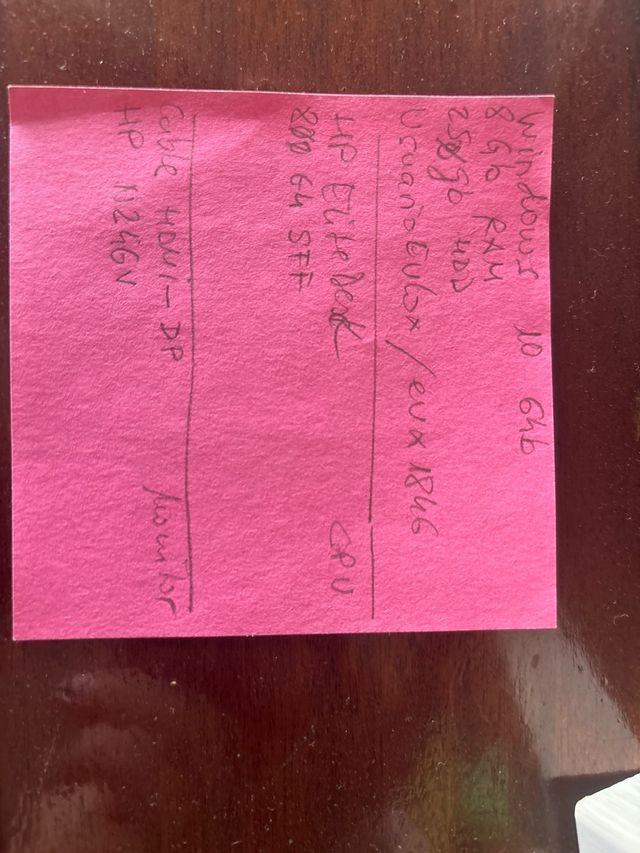 Windows 10 64b
8 Gb RAM
250Gb HDD
Usuario Evlox / evx1846
HP EliteDesk CPU
800 G4 SFF
Cable HDMI-DP Monitor
HP N246V